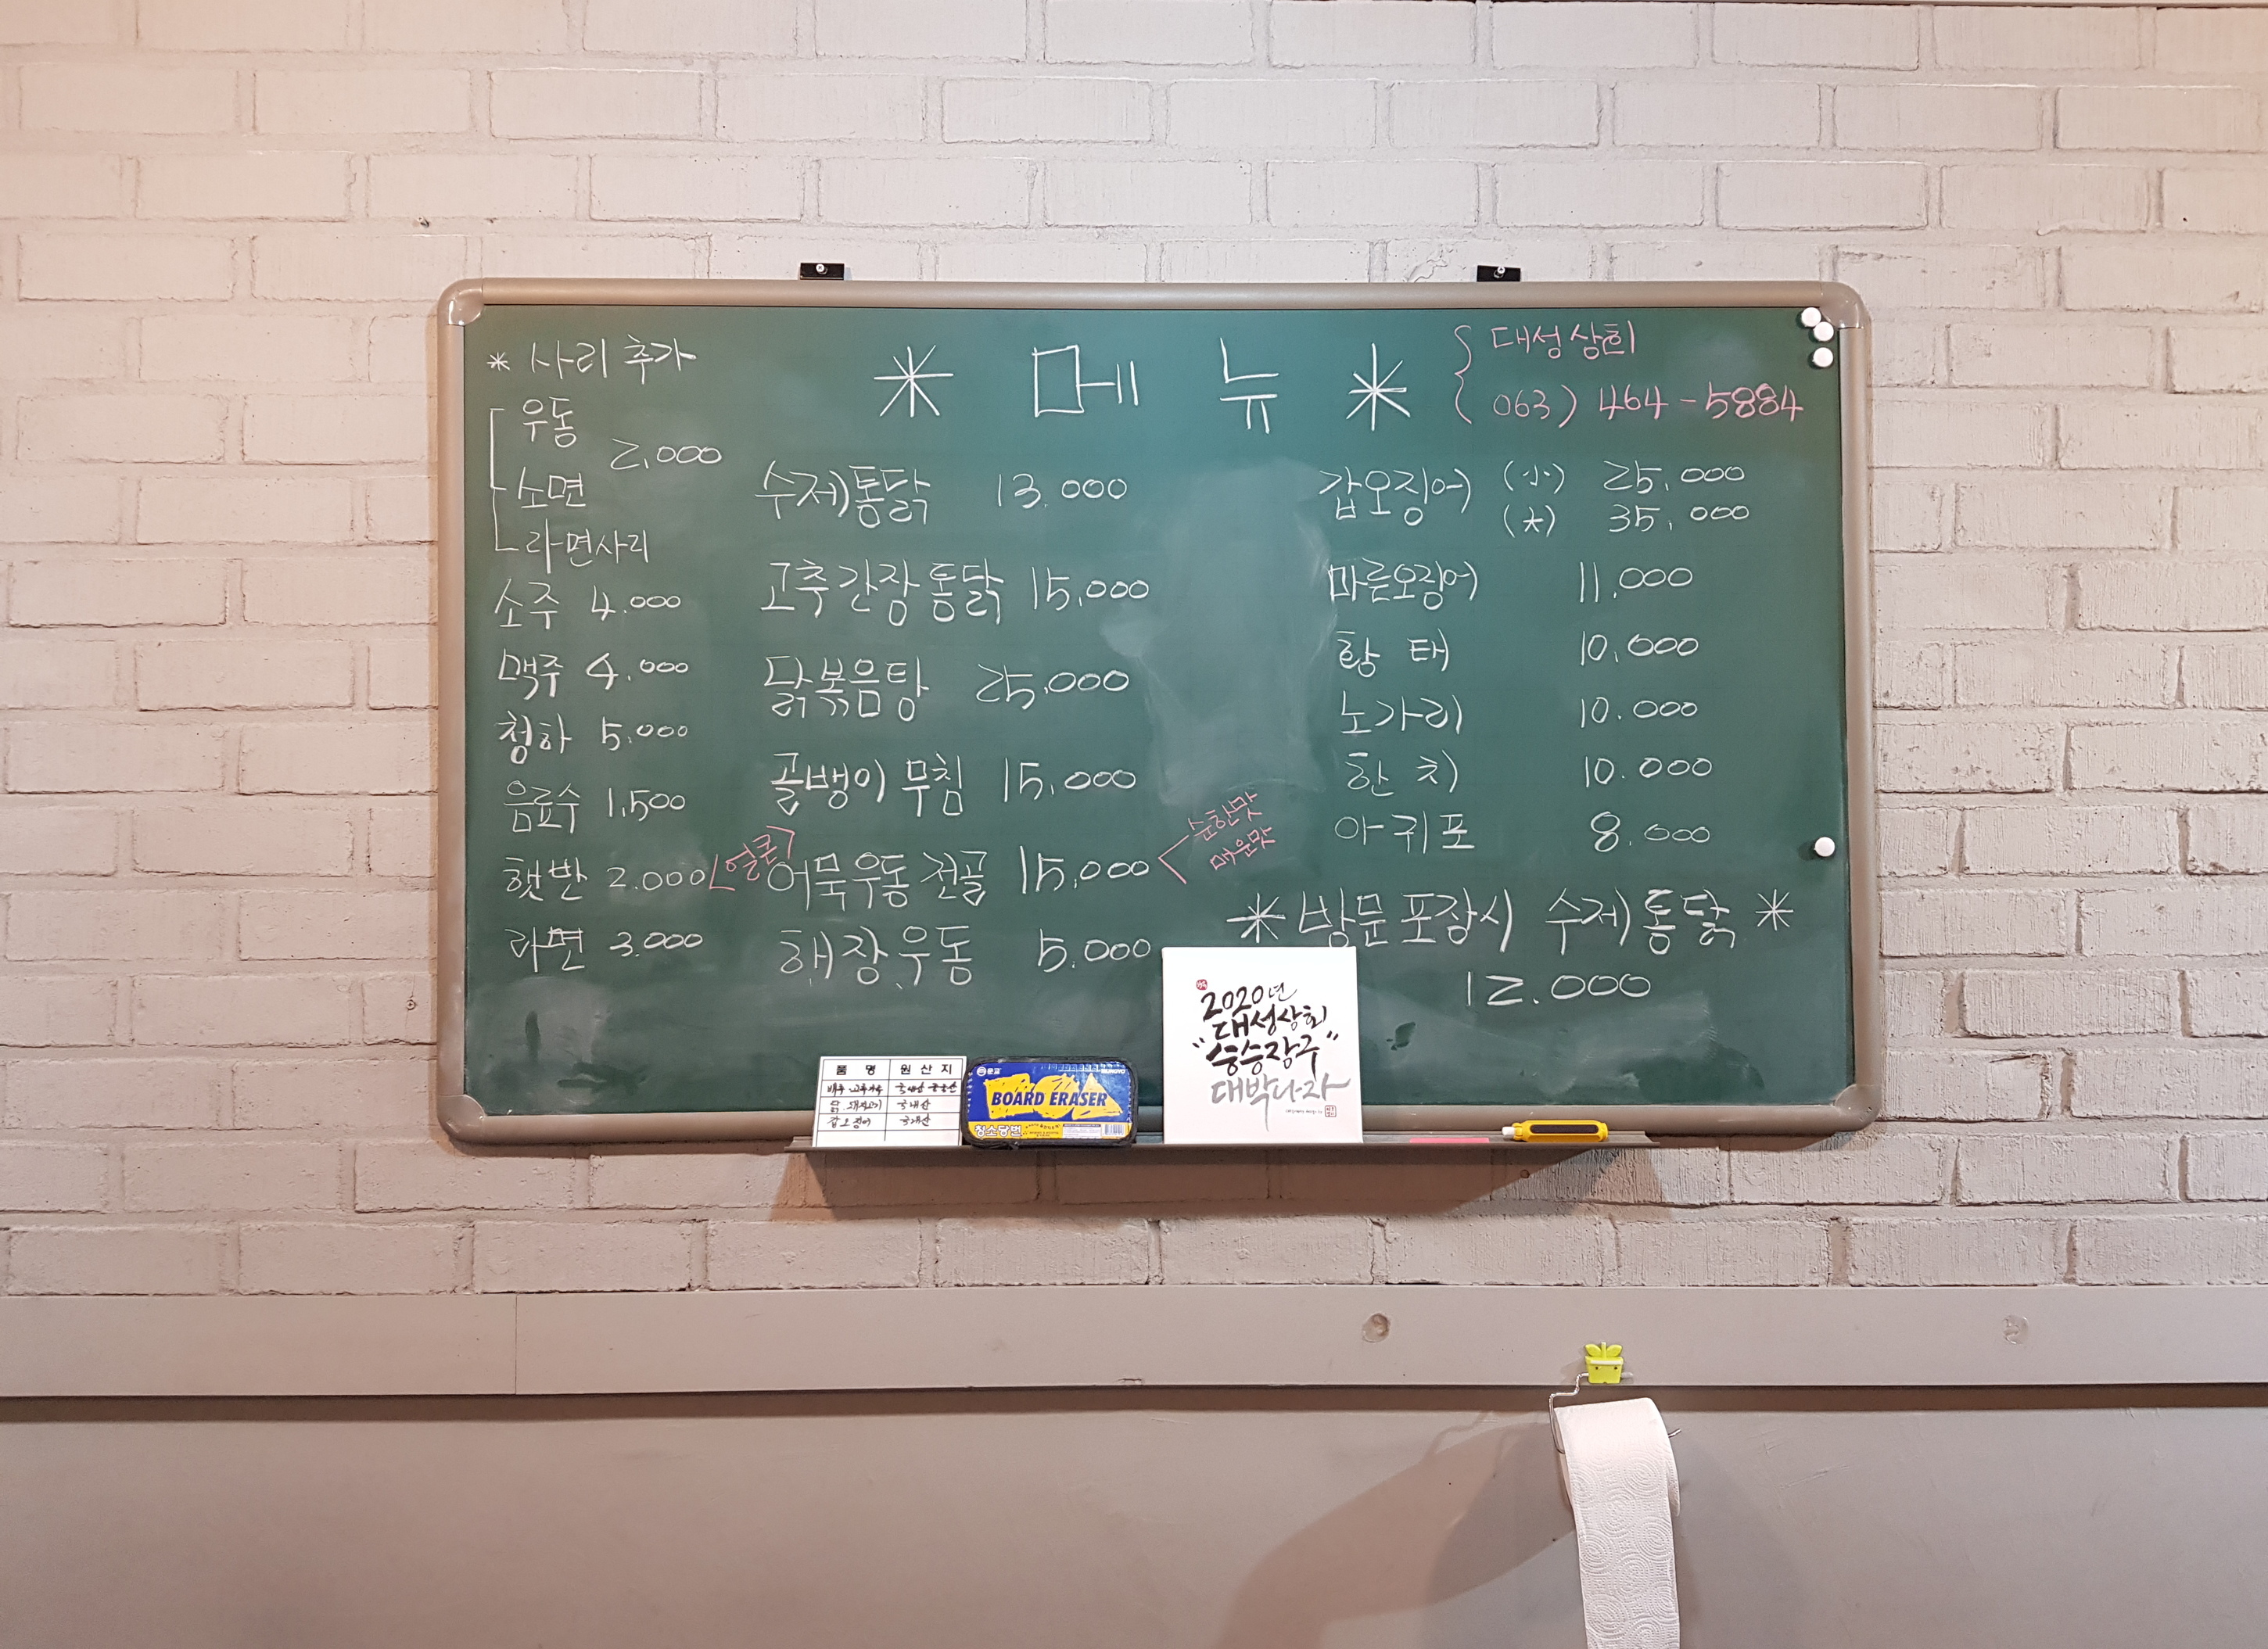 * 사리 추가
우동
2,000
소면
라면사리
소주 4.000
맥주 4.000
청하 5.000
음료수 1,500
햇반 2.000
라면 3.000
* 메 뉴 *
수제통닭 13.000
고추간장통닭 15,000
닭볶음탕 25,000
골뱅이 무침 15,000
<얼큰>
어묵우동 전골 15,000
순한맛
매운맛
해장우동 5.000
대성상회
063) 464-5884
갑오징어 (小) 25,000
(大) 35,000
마른오징어 11.000
황 태 10,000
노가리 10.000
한 치 10.000
아귀포 8.000
* 방문 포장시 수제통닭 *
12.000
품 명 원 산 지
배추 고춧가루 국내산 중국산
닭 돼지고기 국내산
갑오징어 국내산
문교
MUNGYO
BOARD ERASER
청소당번
2020년
대성상회
"승승장구"
대박나자